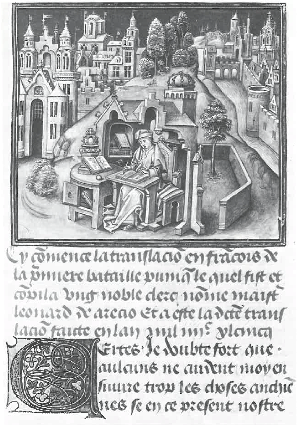 Cy cõmence la translaciõ en frãcois de
la p̃miere bataille puniq̃ le quel fist et
cõpila vng noble clerc nõme maist̃
leonard de arecio et a este la dicte trans
lacion faicte en lan mil iiiiᶜ
Certes Je doubte fort que
aulcuns ne cuident moy en
suiure trop les choses anciẽ
nes se en ce present nostre